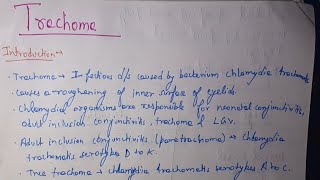 Trachoma
Introduction→
• Trachoma → Infectious d/s caused by bacterium chlamydia trachomatis
• causes a roughening of inner surface of eyelids.
• Chlamydial organisms are responsible for neonatal conjunctivitis,
adult inclusion conjunctivitis, trachoma & LGV.
• Adult inclusion conjunctivitis (paratrachoma) → Chlamydia
trachomatis serotypes D to K.
• True trachoma → chlamydia trachomatis serotypes A to C.